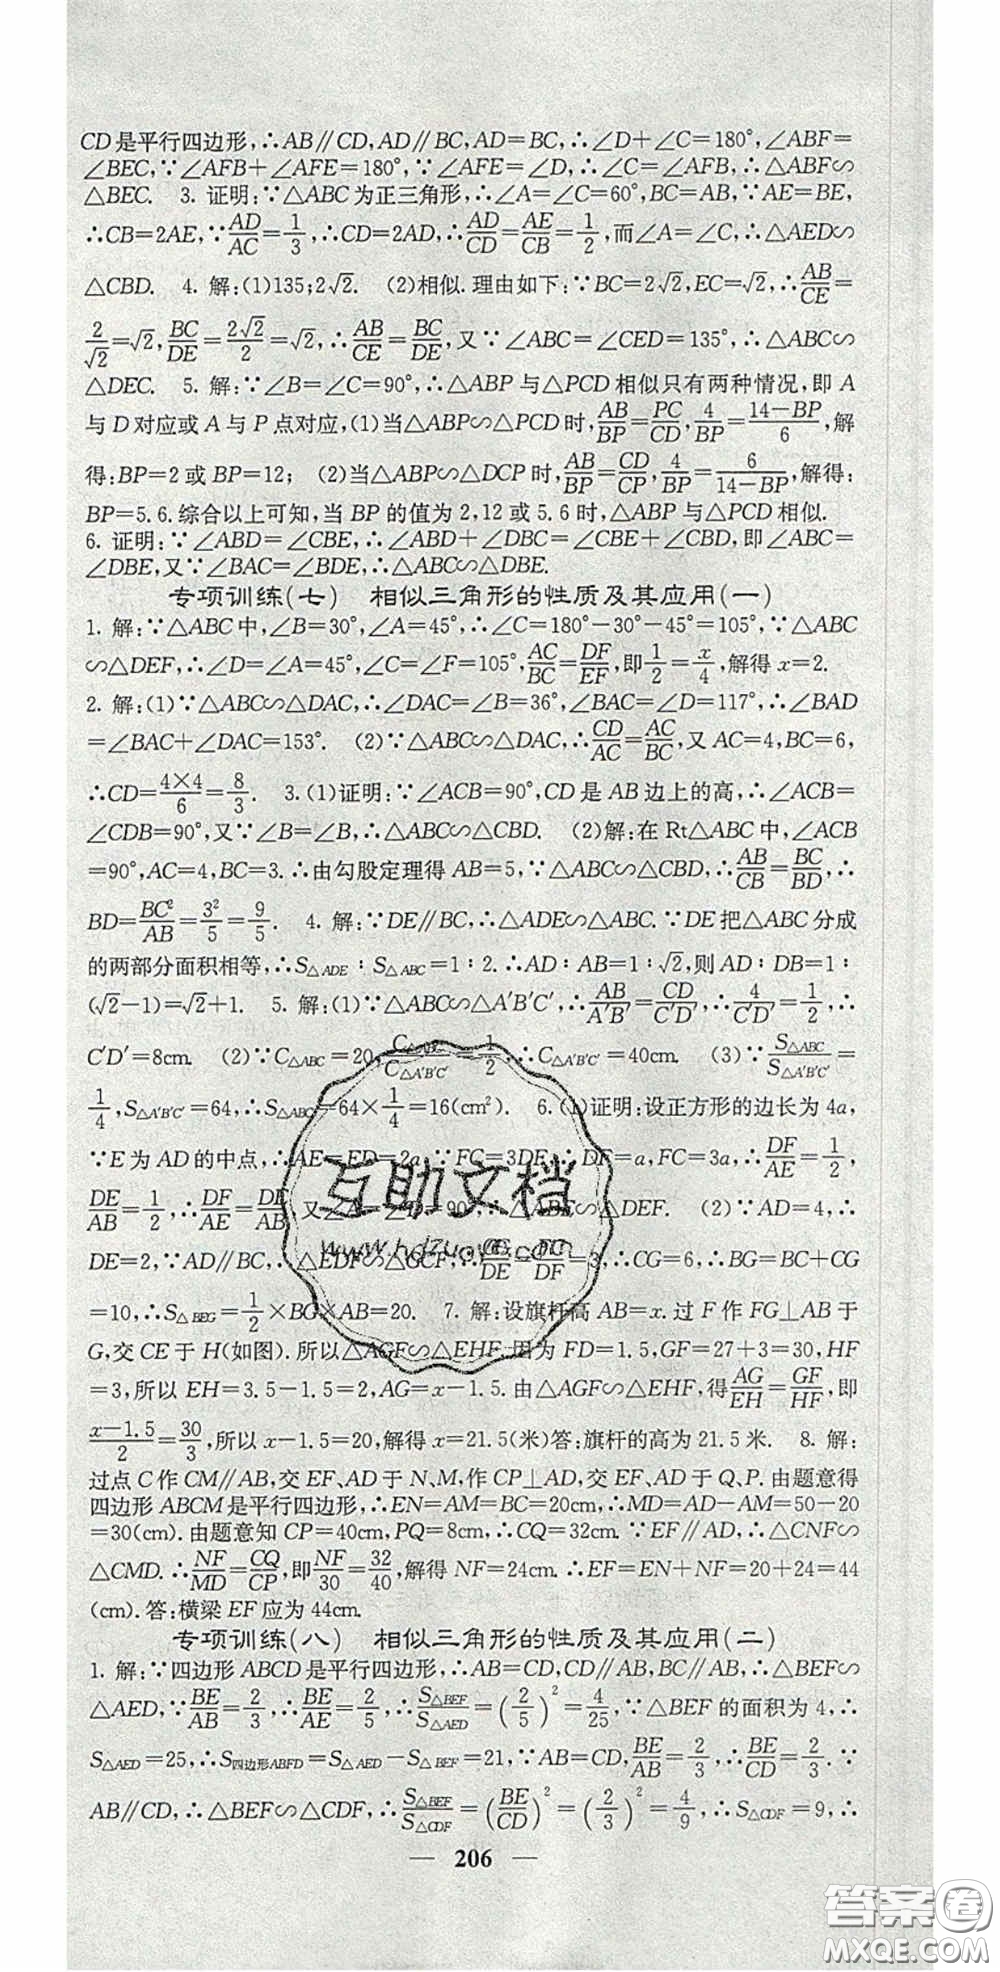 CD是平行四边形,∴AB∥CD,AD∥BC,AD=BC,∴∠D+∠C=180°,∠ABF=
∠BEC,∵∠AFB+∠AFE=180°,∵∠AFE=∠D,∴∠C=∠AFB,∴△ABF∽
△BEC. 3. 证明:∵△ABC为正三角形,∴∠A=∠C=60°,BC=AB,∵AE=BE,
∴CB=2AE,∵AD/AC=1/3,∴CD=2AD,∴AD/CD=AE/CB=1/2,而∠A=∠C,∴△AED∽
△CBD. 4. 解:(1)135;2√2. (2)相似.理由如下:∵BC=2√2,EC=√2,∴AB/CE=
2/√2=√2,BC/DE=2√2/2=√2,∴AB/CE=BC/DE,又∵∠ABC=∠CED=135°,∴△ABC∽
△DEC. 5. 解:∵∠B=∠C=90°,∴△ABP与△PCD相似只有两种情况,即A
与D对应或A与P点对应,(1)当△ABP∽△PCD时,AB/BP=PC/CD,4/BP=(14-BP)/6,解
得:BP=2或BP=12; (2)当△ABP∽△DCP时,AB/BP=CD/CP,4/BP=6/(14-BP),解得:
BP=5.6.综合以上可知,当BP的值为2,12或5.6时,△ABP与△PCD相似.
6. 证明:∵∠ABD=∠CBE,∴∠ABD+∠DBC=∠CBE+∠CBD,即∠ABC=
∠DBE,又∵∠BAC=∠BDE,∴△ABC∽△DBE.
专项训练(七) 相似三角形的性质及其应用(一)
1. 解:∵△ABC中,∠B=30°,∠A=45°,∴∠C=180°-30°-45°=105°,∵△ABC
∽△DEF,∴∠D=∠A=45°,∠C=∠F=105°,AC/BC=DF/EF,即1/2=x/4,解得x=2.
2. 解:(1)∵△ABC∽△DAC,∴∠DAC=∠B=36°,∠BAC=∠D=117°,∴∠BAD
=∠BAC+∠DAC=153°. (2)∵△ABC∽△DAC,∴CD/AC=AC/BC,又AC=4,BC=6,
∴CD=4×4/6=8/3. 3.(1)证明:∵∠ACB=90°,CD是AB边上的高,∴∠ACB=
∠CDB=90°,又∵∠B=∠B,∴△ABC∽△CBD. (2)解:在Rt△ABC中,∠ACB
=90°,AC=4,BC=3.∴由勾股定理得AB=5,∵△ABC∽△CBD,∴AB/CB=BC/BD,∴
BD=BC²/AB=3²/5=9/5. 4. 解:∵DE∥BC,∴△ADE∽△ABC.∵DE把△ABC分成
的两部分面积相等,∴S△ADE:S△ABC=1:2.∴AD:AB=1:√2,则AD:DB=1:
(√2-1)=√2+1. 5. 解:(1)∵△ABC∽△A′B′C′,∴AB/A′B′=CD/C′D′,∴4/C′D′=1/2,∴
C′D′=8cm. (2)∵C△ABC=20,C△ABC/C△A′B′C′=1/2,∴C△A′B′C′=40cm. (3)∵S△ABC/S△A′B′C′=
1/4,S△A′B′C′=64,∴S△ABC=64×1/4=16(cm²). 6.(1)证明:设正方形的边长为4a,
∵E为AD的中点,∴AE=ED=2a,∵FC=3DF,∴DF=a,FC=3a,∴DF/AE=1/2,
DE/AB=1/2,∴DF/AE=DE/AB,又∠A=∠D=90°,∴△ABE∽△DEF. (2)∵AD=4,∴
DE=2,∵AD∥BC,∴△EDF∽△GCF,∴CG/DE=FC/DF=3,∴CG=6,∴BG=BC+CG
=10,∴S△BEG=1/2×BG×AB=20. 7. 解:设旗杆高AB=x.过F作FG⊥AB于
G,交CE于H(如图).所以△AGF∽△EHF.因为FD=1.5,GF=27+3=30,HF
=3,所以EH=3.5-1.5=2,AG=x-1.5.由△AGF∽△EHF,得AG/EH=GF/HF,即
(x-1.5)/2=30/3,所以x-1.5=20,解得x=21.5(米)答:旗杆的高为21.5米. 8. 解:
过点C作CM∥AB,交EF、AD于N、M,作CP⊥AD,交EF、AD于Q、P.由题意得
四边形ABCM是平行四边形,∴EN=AM=BC=20cm,∴MD=AD-AM=50-20
=30(cm).由题意知CP=40cm,PQ=8cm,∴CQ=32cm.∵EF∥AD,∴△CNF∽
△CMD.∴NF/MD=CQ/CP,即NF/30=32/40,解得NF=24cm.∴EF=EN+NF=20+24=44
(cm).答:横梁EF应为44cm.
专项训练(八) 相似三角形的性质及其应用(二)
1. 解:∵四边形ABCD是平行四边形,∴AB=CD,CD∥AB,BC∥AB,∴△BEF∽
△AED,∵BE/AB=2/3,∴BE/AE=2/5,∴S△BEF/S△AED=(2/5)²=4/25,∵△BEF的面积为4,∴
S△AED=25,∴S四边形ABFD=S△AED-S△BEF=21,∵AB=CD,BE/AB=2/3,∴BE/CD=2/3.∵
AB∥CD,∴△BEF∽△CDF,∴S△BEF/S△CDF=(BE/CD)²=(2/3)²=4/9,∴S△CDF=9,∴
— 206 —
互助文档
www.hdzuoye.com
答案圈
MXQE.COM